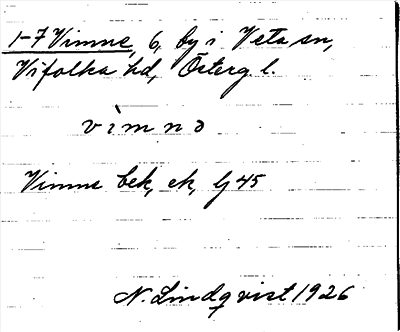 1-7 Vimne, 6, by i Veta sn,
Vifolka hd, Österg l.
vìmnə
Vimne bek, ek, bl 45
N. Lindqvist 1926